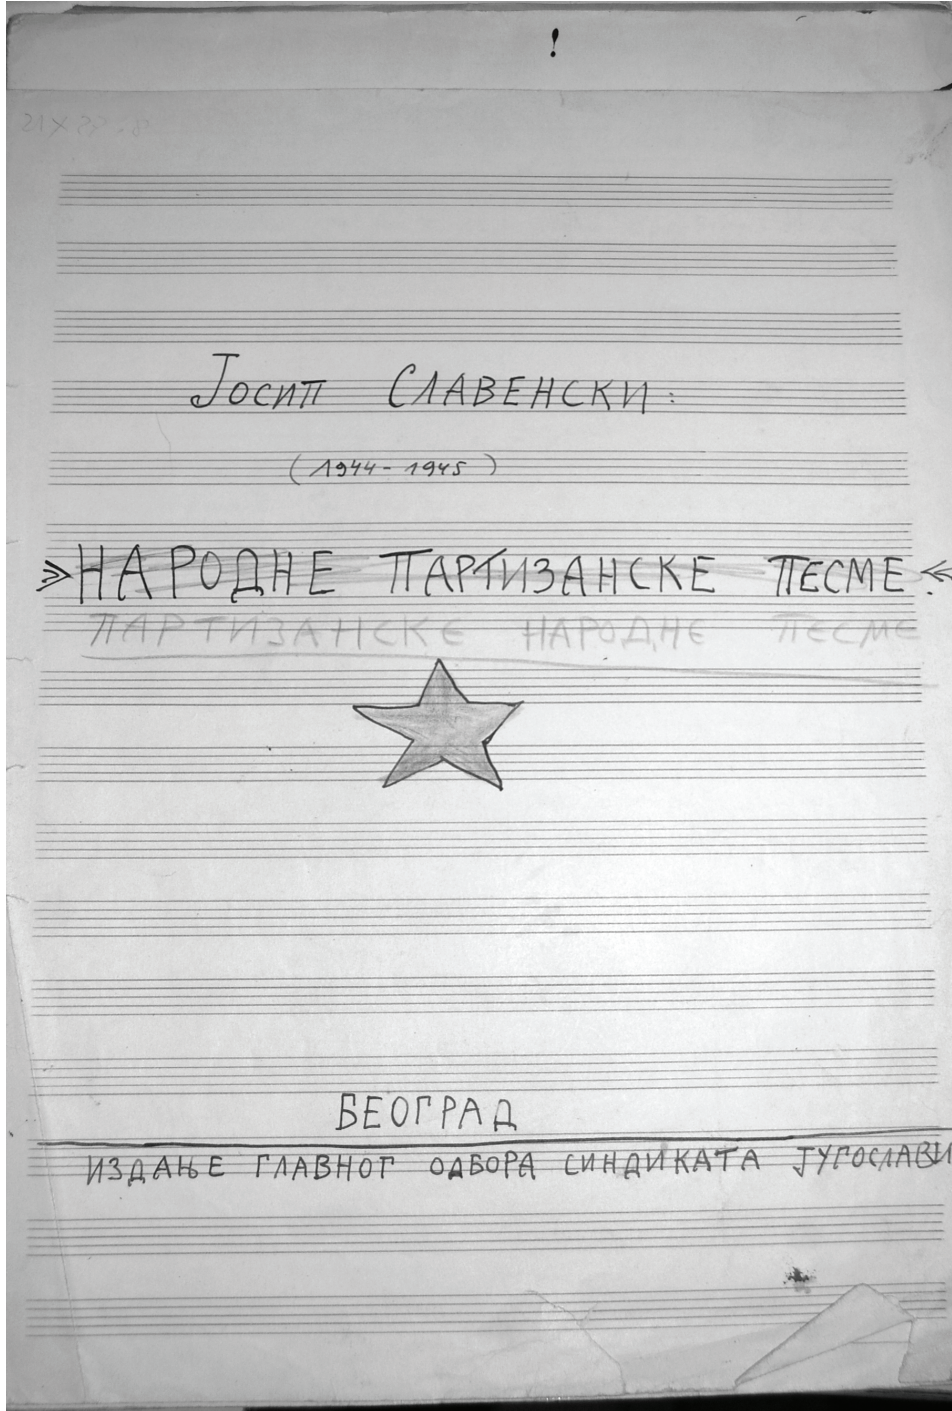 !
Јосип Славенски:
(1944-1945)
»НАРОДНЕ ПАРТИЗАНСКЕ ПЕСМЕ.«
ПАРТИЗАНСКЕ НАРОДНЕ ПЕСМЕ
БЕОГРАД
ИЗДАЊЕ ГЛАВНОГ ОДБОРА СИНДИКАТА